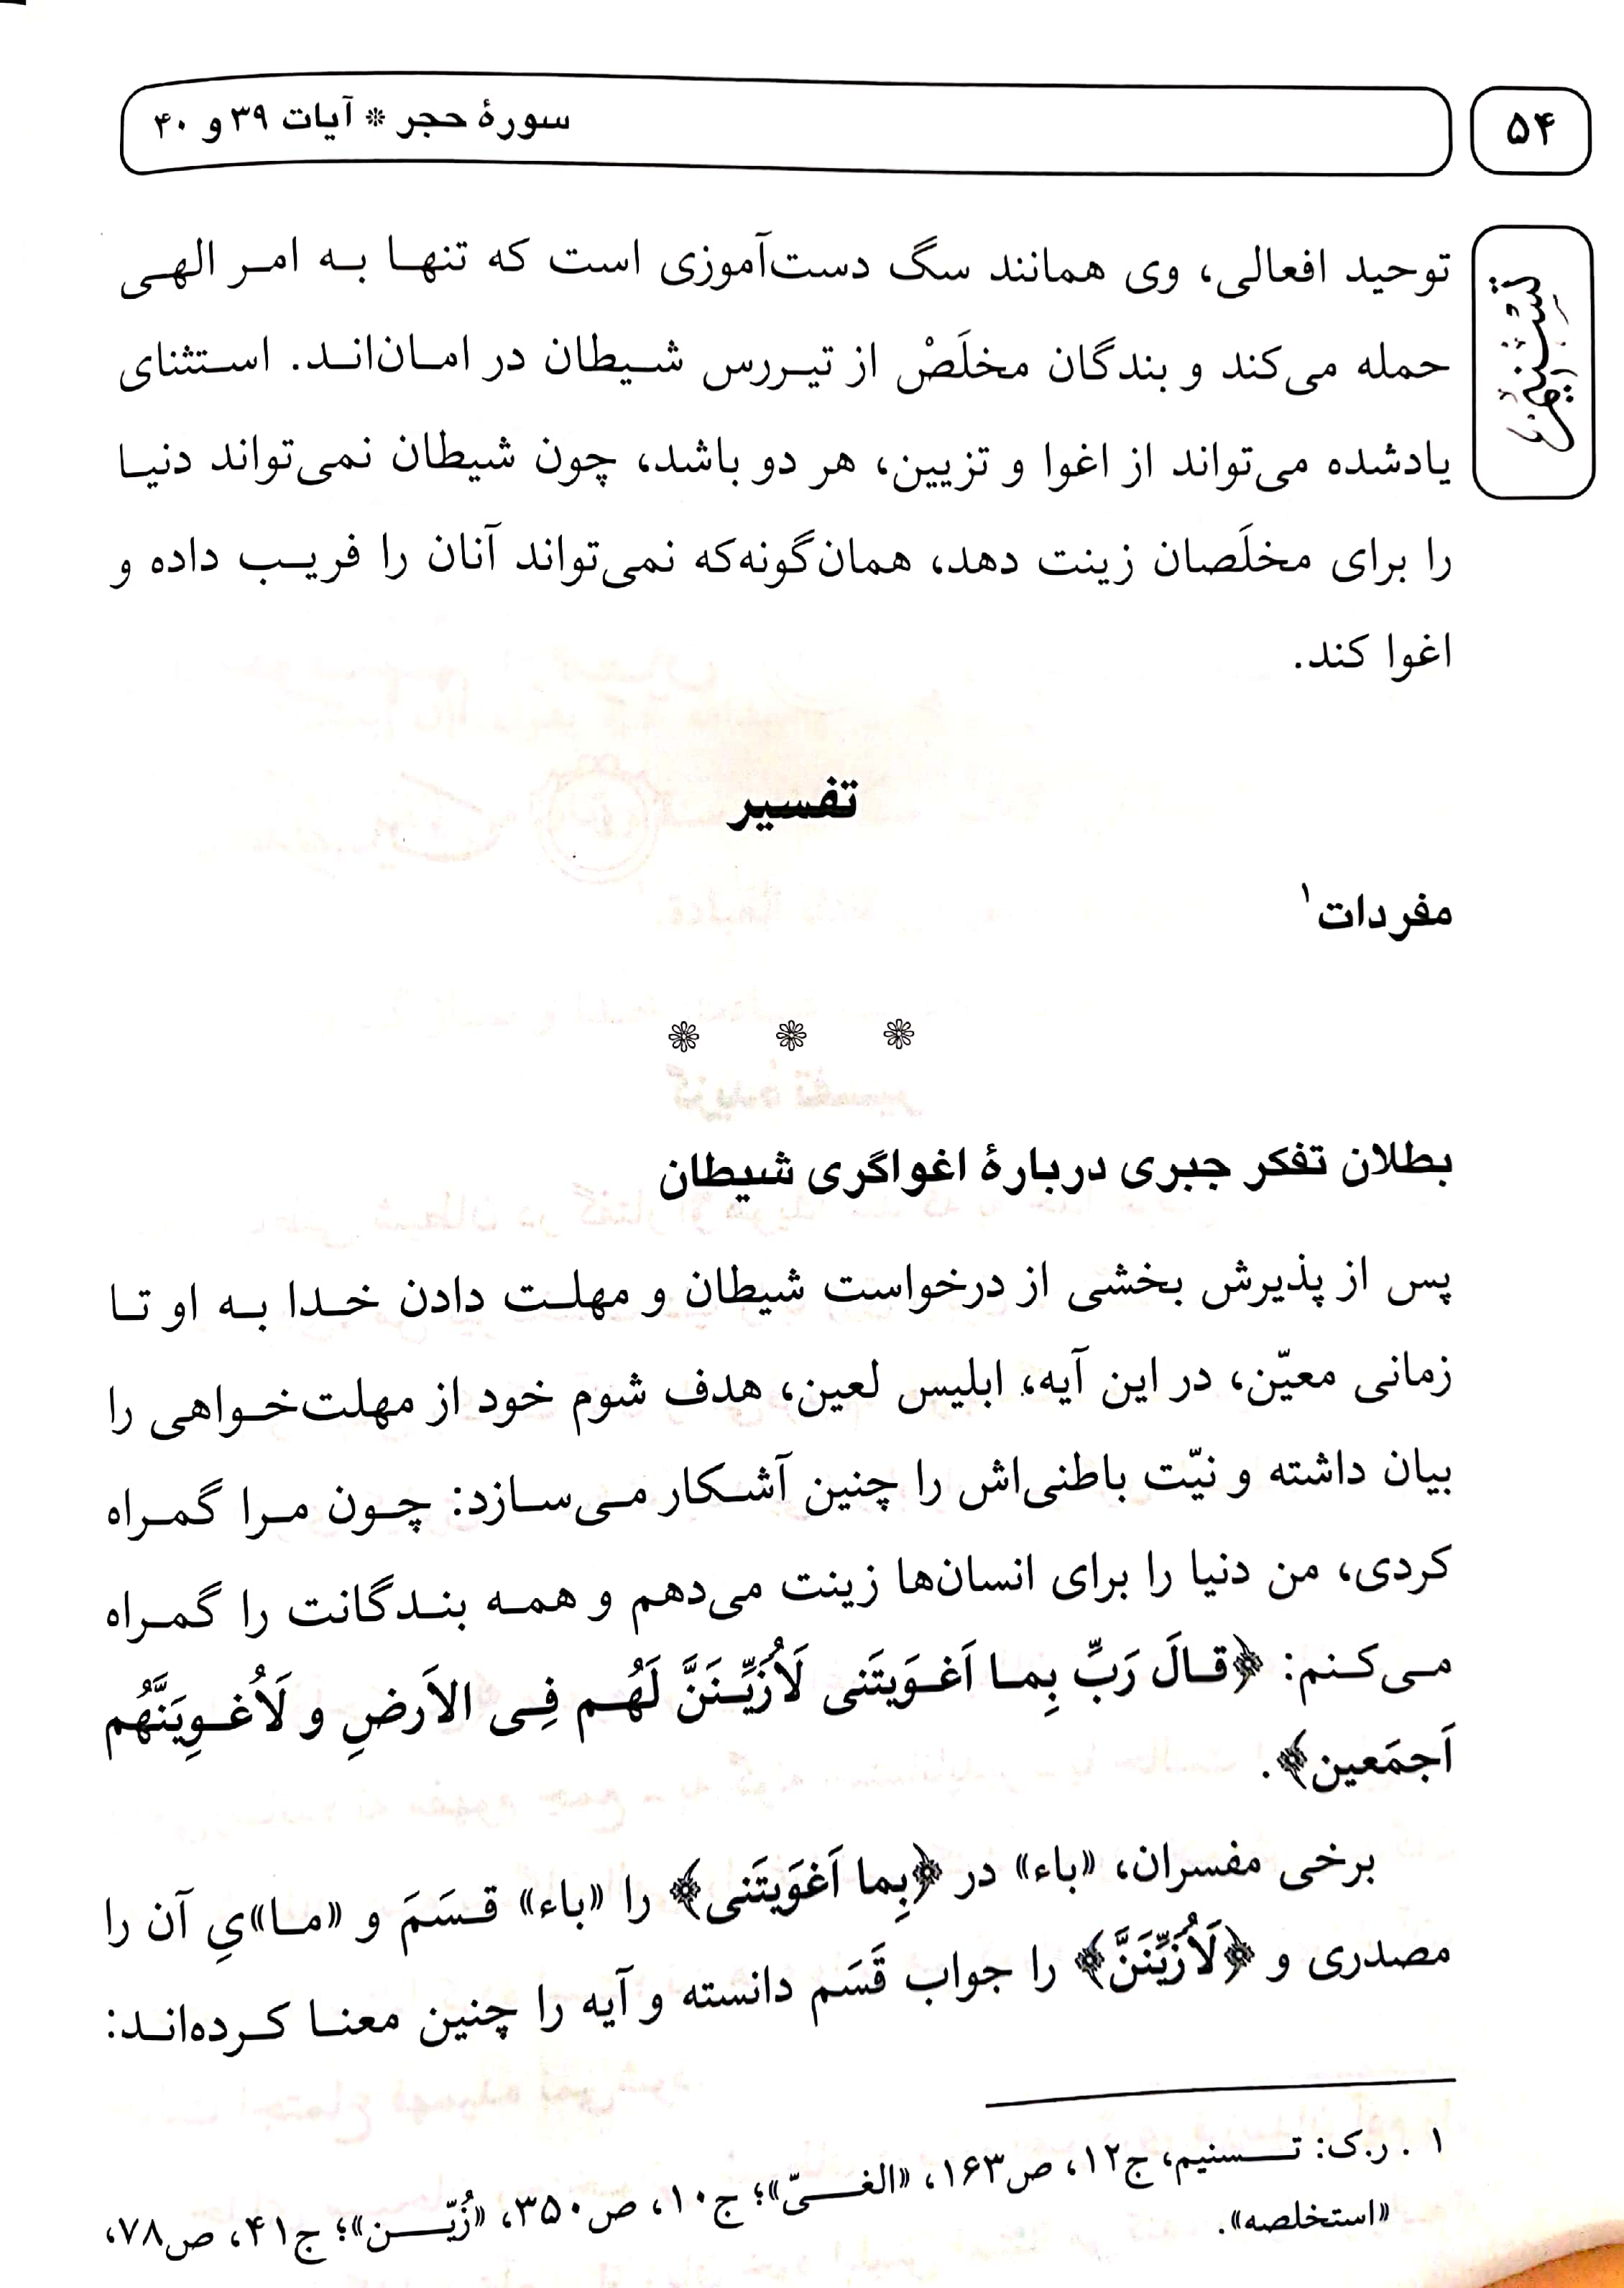 ۵۴
سورهٔ حجر * آیات ۳۹ و ۴۰
تسنیم
توحید افعالی، وی همانند سگ دست‌آموزی است که تنهـا بـه امـر الهـی
حمله می‌کند و بندگان مخلَصْ از تیـررس شـیطان در امـان‌انـد. اسـتثنای
یادشده می‌تواند از اغوا و تزیین، هر دو باشد، چون شیطان نمی‌تواند دنیـا
را برای مخلَصان زینت دهد، همان‌گونه‌که نمی‌تواند آنان را فریـب داده و
اغوا کند.
تفسیر
مفردات۱
بطلان تفکر جبری دربارهٔ اغواگری شیطان
پس از پذیرش بخشی از درخواست شیطان و مهلـت دادن خـدا بـه او تـا
زمانی معیّن، در این آیه، ابلیس لعین، هدف شوم خود از مهلت‌خـواهی را
بیان داشته و نیّت باطنی‌اش را چنین آشـکار مـی‌سـازد: چـون مـرا گمـراه
کردی، من دنیا را برای انسان‌ها زینت می‌دهم و همـه بنـدگانت را گمـراه
مـی‌کـنم: ﴿قـالَ رَبِّ بِمـا اَغـوَیتَنی لَاُزَیِّـنَنَّ لَهُـم فِـی الاَرضِ و لَاُغـوِیَنَّهُم
اَجمَعین﴾.
برخی مفسران، «باء» در ﴿بِما اَغوَیتَنی﴾ را «باء» قـسَمَ و «مـا»یِ آن را
مصدری و ﴿لَاُزَیِّنَنَّ﴾ را جواب قَسَم دانسته و آیه را چنین معنـا کـرده‌انـد:
۱ . ر.ک: تـــسنیم، ج۱۲، ص۱۶۳، «الغـــیّ»؛ ج۱۰، ص۳۵۰، «زُیّـــن»؛ ج۴۱، ص۷۸،
«استخلصه».